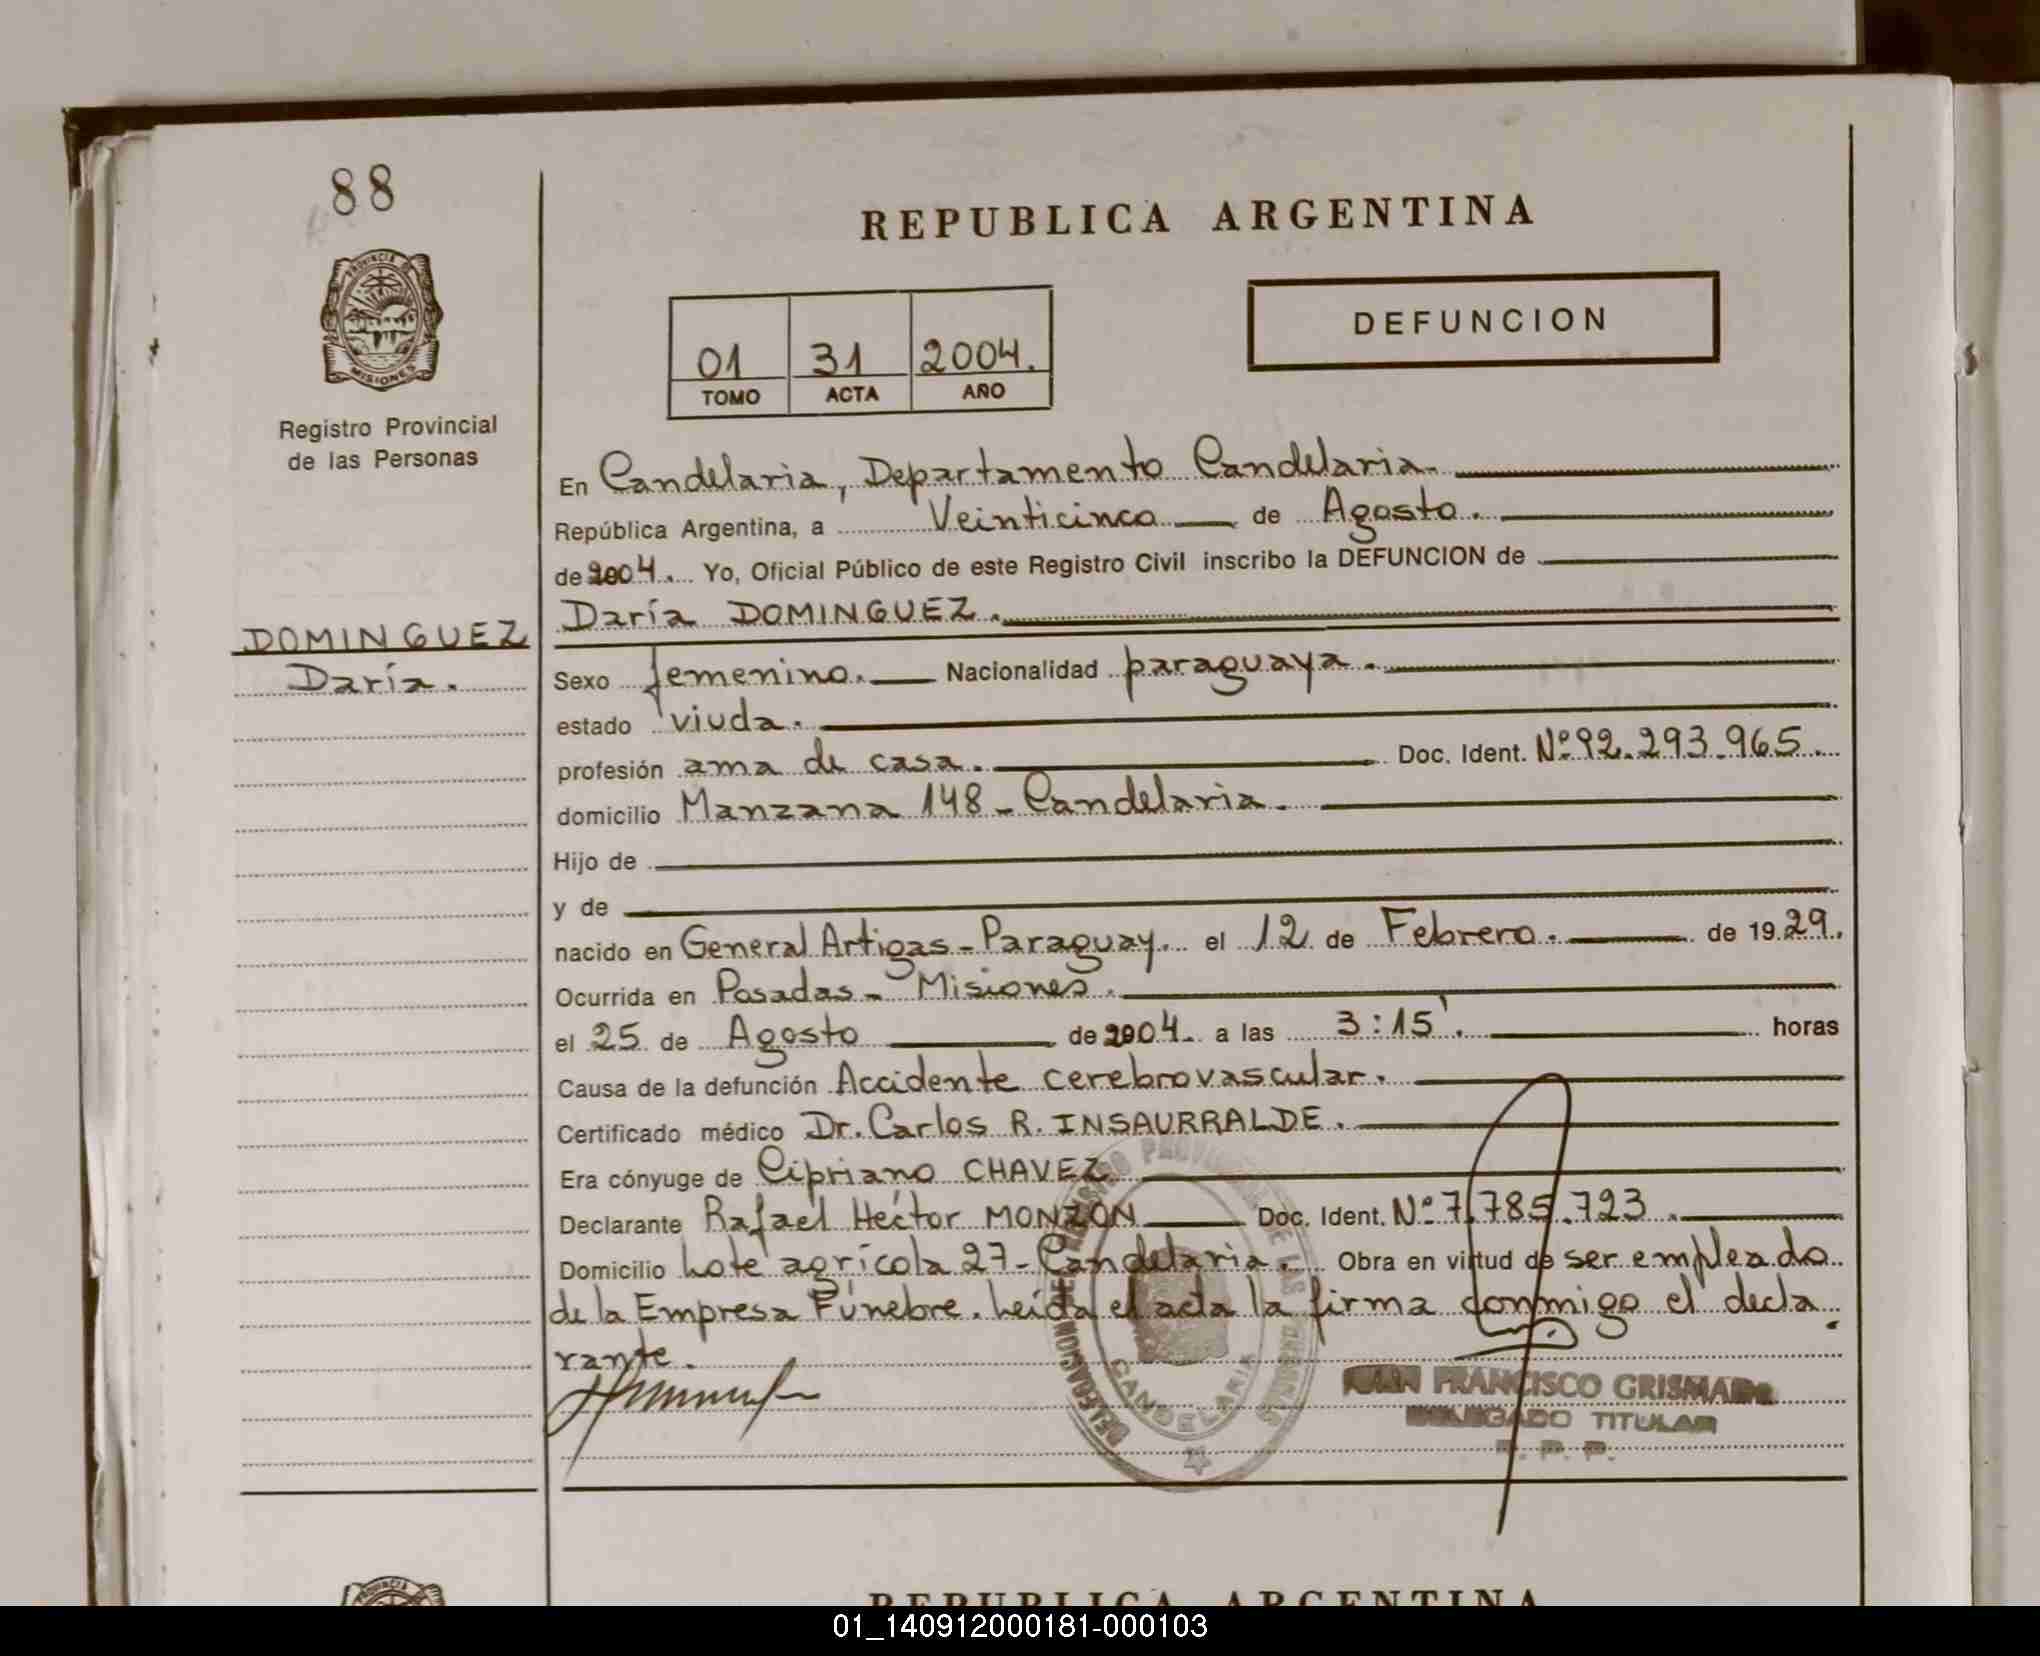 88
PROVINCIA DE
MISIONES
Registro Provincial
de las Personas
DOMINGUEZ
Daría.
REPUBLICA ARGENTINA
DEFUNCION
01 31 2004.
TOMO ACTA AÑO
En Candelaria, Departamento Candelaria.
República Argentina, a Veinticinco de Agosto.
de 2004. Yo, Oficial Público de este Registro Civil inscribo la DEFUNCION de
Daría DOMINGUEZ.
Sexo femenino. Nacionalidad paraguaya.
estado viuda.
profesión ama de casa. Doc. Ident. Nº 92.293.965.
domicilio Manzana 148 - Candelaria.
Hijo de
y de
nacido en General Artigas - Paraguay. el 12 de Febrero. de 1929.
Ocurrida en Posadas - Misiones.
el 25 de Agosto de 2004. a las 3:15'. horas
Causa de la defunción Accidente cerebrovascular.
Certificado médico Dr. Carlos R. INSAURRALDE.
Era cónyuge de Cipriano CHAVEZ
Declarante Rafael Héctor MONZON Doc. Ident. Nº 7.785.723.
Domicilio Lote agrícola 27 - Candelaria. Obra en virtud de ser empleado
de la Empresa Fúnebre. Leída el acta la firma conmigo el decla
rante.
CANDELARIA
JUAN FRANCISCO
DELEGADO TITULAR
R. P. P.
REPUBLICA ARGENTINA
01_140912000181-000103